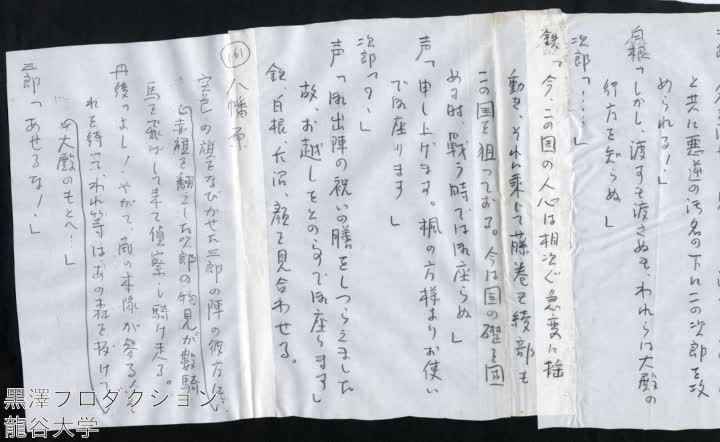 と共に悪逆の汚名の下にこの次郎を攻
められる！」
白根「しかし、渡すも渡さぬも、われらは大殿の
行方を知らぬ」
次郎「・・・」
鉄「今、この国の人心は相次ぐ急変に揺
動き、それに乗じて藤巻も綾部も
この国を狙っておる。今は国の礎を固
める時 戦う時では御座らぬ」
声「申し上げます。楓の方様よりお使い
で御座ります」
次郎「？」
声「御出陣の祝いの膳をしつらえました
故、お越しをとの事で御座りまする」
鉄、白根、長沼、顔を見合わせる。
161 八幡原
空色の旗をなびかせた三郎の陣の彼方に
赤旗を翻えした次郎の物見が数騎
馬を飛ばして来て偵察し騎け走る。
丹後「よし！やがて、敵の本隊が参る！
れを待つ、われ等はあの森を抜けつ
大殿のもとへ！」
三郎「あせるな！」
黒澤プロダクション
龍谷大学